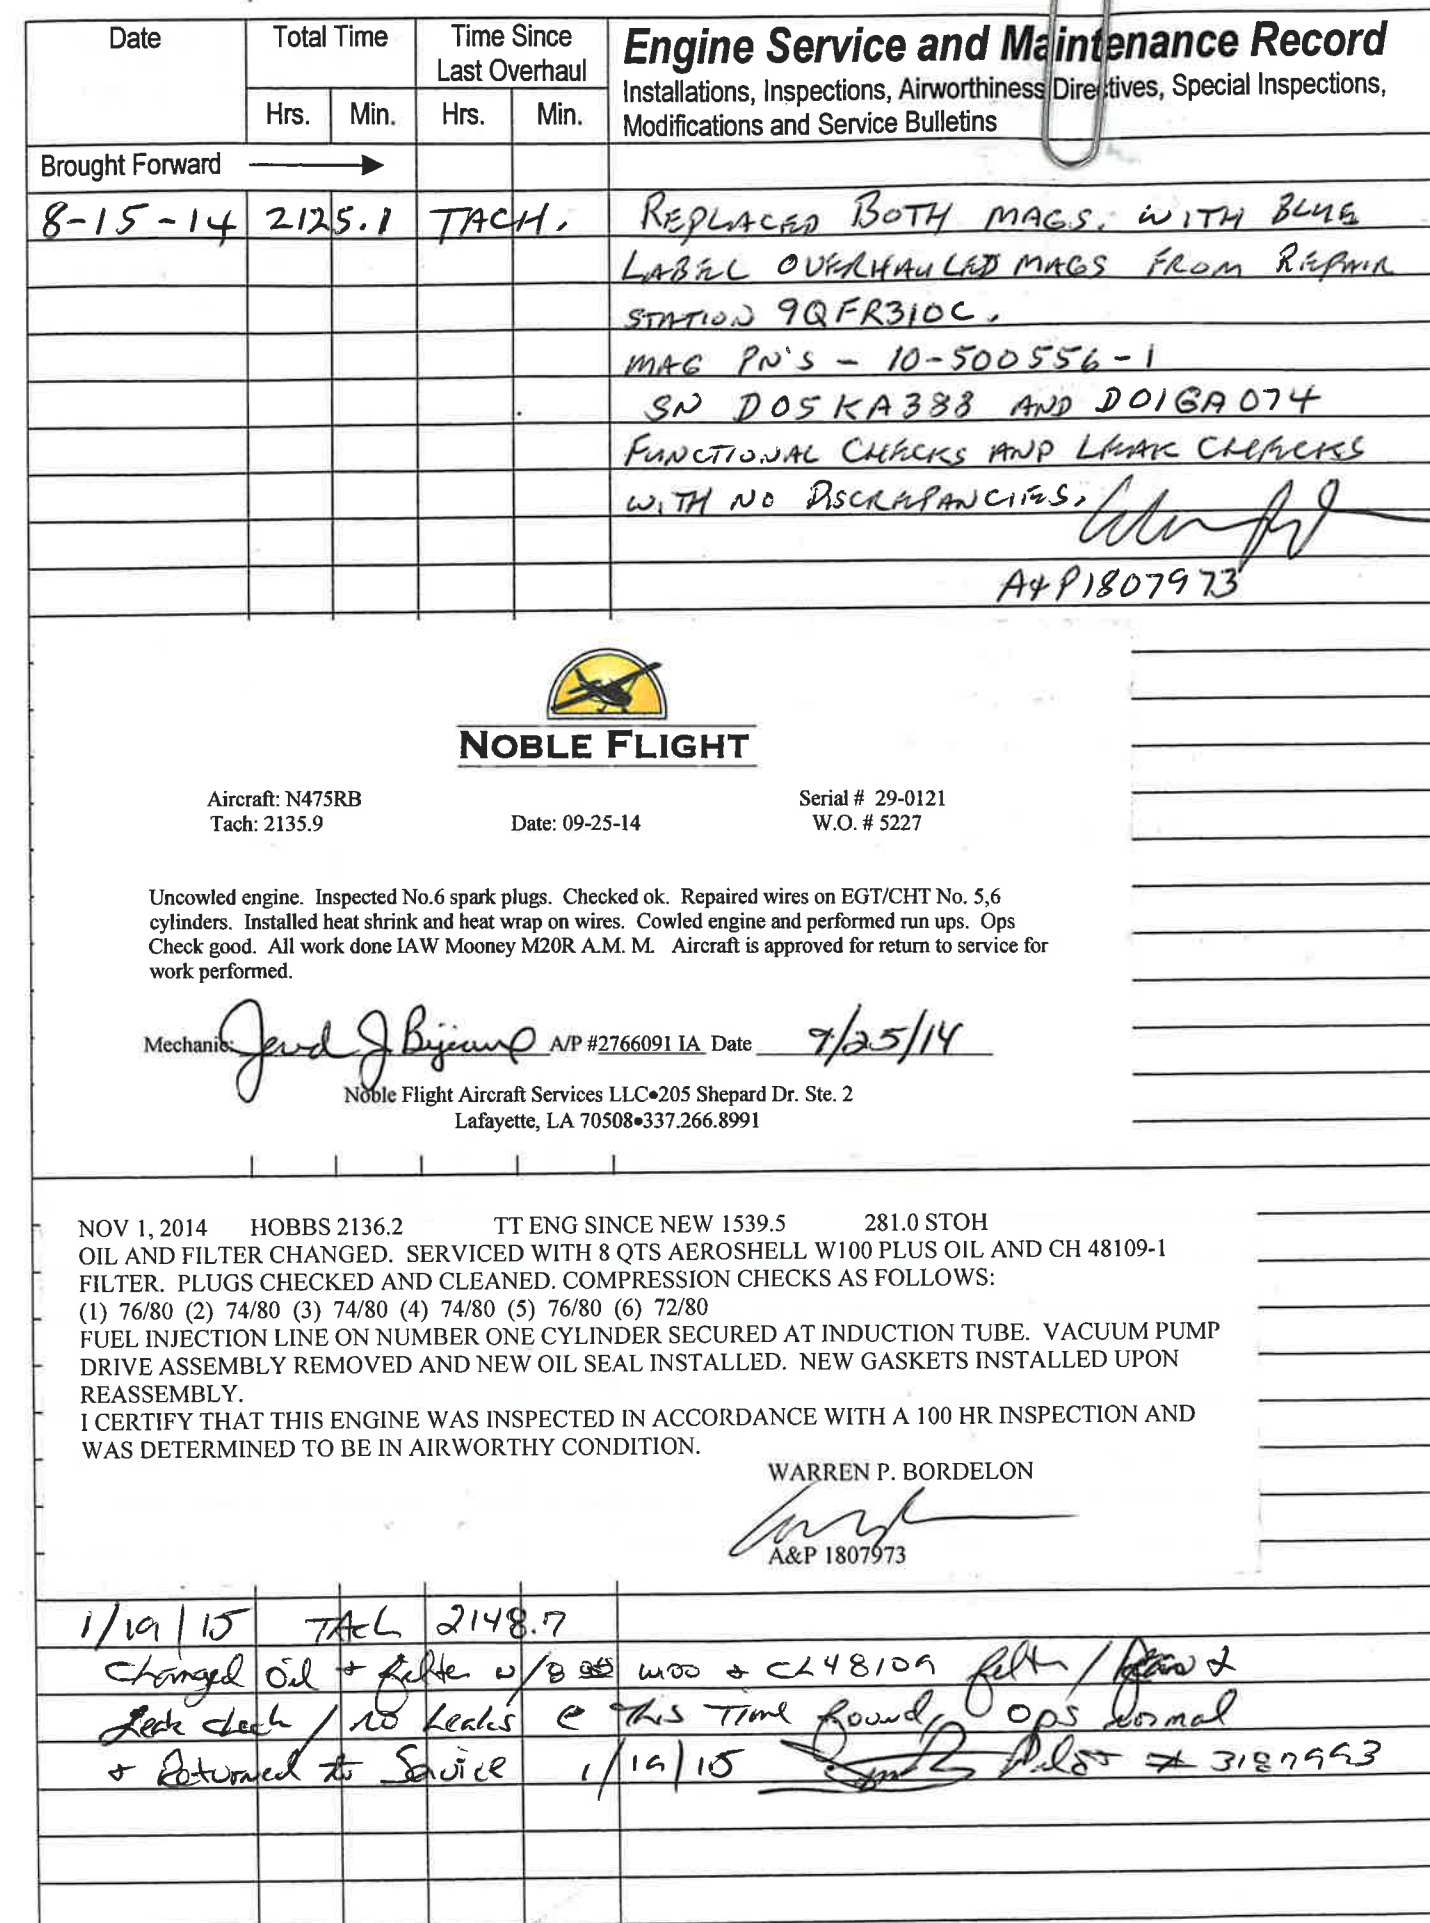 Date
Total Time
Time Since
Last Overhaul
Engine Service and Maintenance Record
Installations, Inspections, Airworthiness Directives, Special Inspections,
Modifications and Service Bulletins
Hrs. Min. Hrs. Min.
Brought Forward
8-15-14 2125.1 TACH. REPLACED BOTH MAGS. WITH BLUE
LABEL OVERHAULED MAGS FROM REPAIR
STATION 9QFR310C.
MAG PN'S - 10-500556-1
SN D05KA383 AND D01GA074
FUNCTIONAL CHECKS AND LEAK CHECKS
WITH NO DISCREPANCIES.
A&P1807973
NOBLE FLIGHT
Aircraft: N475RB Serial # 29-0121
Tach: 2135.9 Date: 09-25-14 W.O. # 5227
Uncowled engine. Inspected No.6 spark plugs. Checked ok. Repaired wires on EGT/CHT No. 5,6
cylinders. Installed heat shrink and heat wrap on wires. Cowled engine and performed run ups. Ops
Check good. All work done IAW Mooney M20R A.M. M. Aircraft is approved for return to service for
work performed.
Mechanic: A/P #2766091 IA Date 9/25/14
Noble Flight Aircraft Services LLC•205 Shepard Dr. Ste. 2
Lafayette, LA 70508•337.266.8991
NOV 1, 2014 HOBBS 2136.2 TT ENG SINCE NEW 1539.5 281.0 STOH
OIL AND FILTER CHANGED. SERVICED WITH 8 QTS AEROSHELL W100 PLUS OIL AND CH 48109-1
FILTER. PLUGS CHECKED AND CLEANED. COMPRESSION CHECKS AS FOLLOWS:
(1) 76/80 (2) 74/80 (3) 74/80 (4) 74/80 (5) 76/80 (6) 72/80
FUEL INJECTION LINE ON NUMBER ONE CYLINDER SECURED AT INDUCTION TUBE. VACUUM PUMP
DRIVE ASSEMBLY REMOVED AND NEW OIL SEAL INSTALLED. NEW GASKETS INSTALLED UPON
REASSEMBLY.
I CERTIFY THAT THIS ENGINE WAS INSPECTED IN ACCORDANCE WITH A 100 HR INSPECTION AND
WAS DETERMINED TO BE IN AIRWORTHY CONDITION.
WARREN P. BORDELON
A&P 1807973
1/19/15 TACH 2148.7
Changed Oil + filter w/8 W100 + CH48109 filter /
Leak check / no Leaks @ this Time found, Ops Normal
+ Returned to Service 1/19/15 Pilot # 3187993